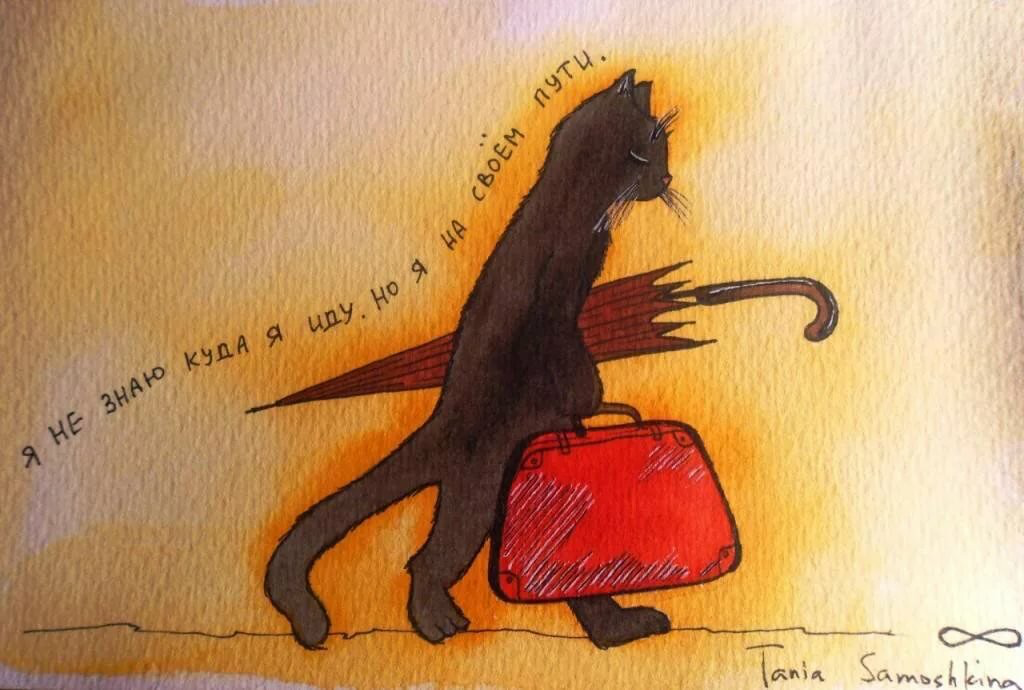 Я НЕ ЗНАЮ КУДА Я ИДУ. НО Я НА СВОЁМ ПУТИ.
Tania Samoshkina